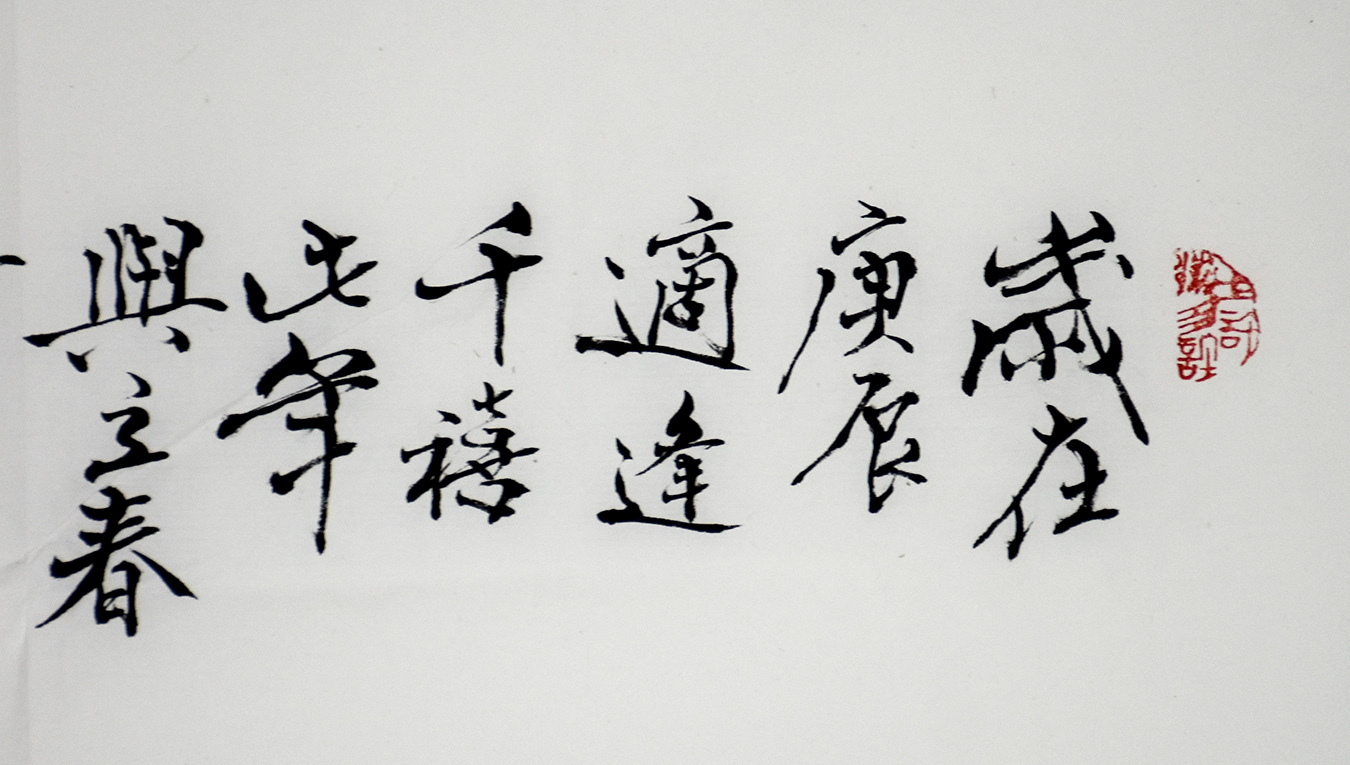 歲在
庚辰
適逢
千禧
此年
與立春